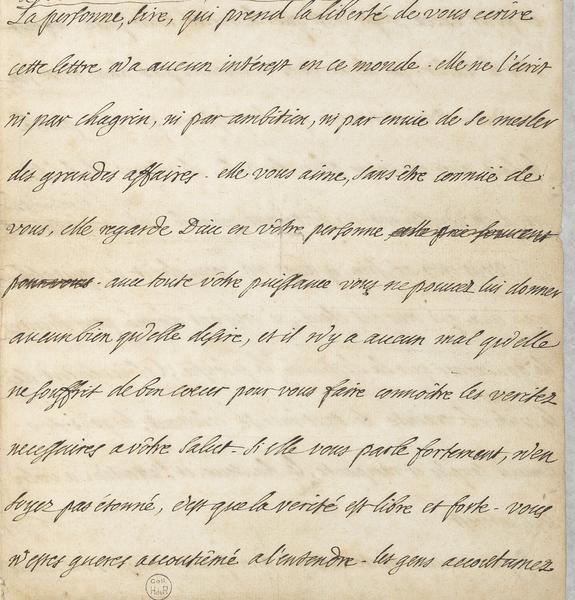 La personne, sire, qui prend la liberté de vous ecrire
cette lettre n'a aucun intérest en ce monde. elle ne l'écrit
ni par chagrin, ni par ambition, ni par envie de se mesler
des grandes affaires. elle vous aime, sans être connuë de
vous, elle regarde Dieu en vôtre personne elle prie souvent
pour vous. avec toute vôtre puissance vous ne pouvez lui donner
aucun bien qu'elle desire, et il n'y a aucun mal qu'elle
ne souffrit de bon coeur pour vous faire connoitre les veritez
necessaires a vôtre salut. si elle vous parle fortement, n'en
soyez pas étonné, c'est que la verité est libre et forte. vous
n'estes gueres accoutumé a l'entendre. les gens accoutumez
Coll
HdeR